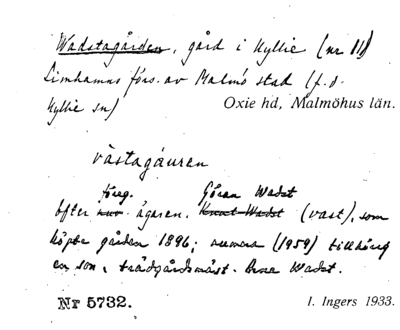 Wadstagården, gård i Hyllie (nr 11)
Limhamns förs. av Malmö stad (f.d.
Hyllie sn)
Oxie hd, Malmöhus län.
västagåuren
föreg. Göran Wadst
Efter ägaren. Knut Wadst (vast), som
köpte gården 1896; numera (1959) tillhörig
en son, trädgårdsmäst. Arne Wadst.
Nr 5732.
I. Ingers 1933.